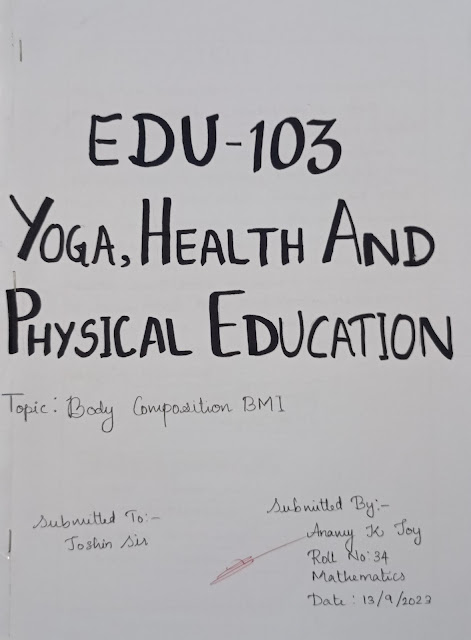 EDU-103
YOGA, HEALTH AND
PHYSICAL EDUCATION
Topic: Body Composition BMI
Submitted To:-
Joshin Sir
Submitted By:-
Anany K Joy
Roll No:34
Mathematics
Date: 13/9/2023